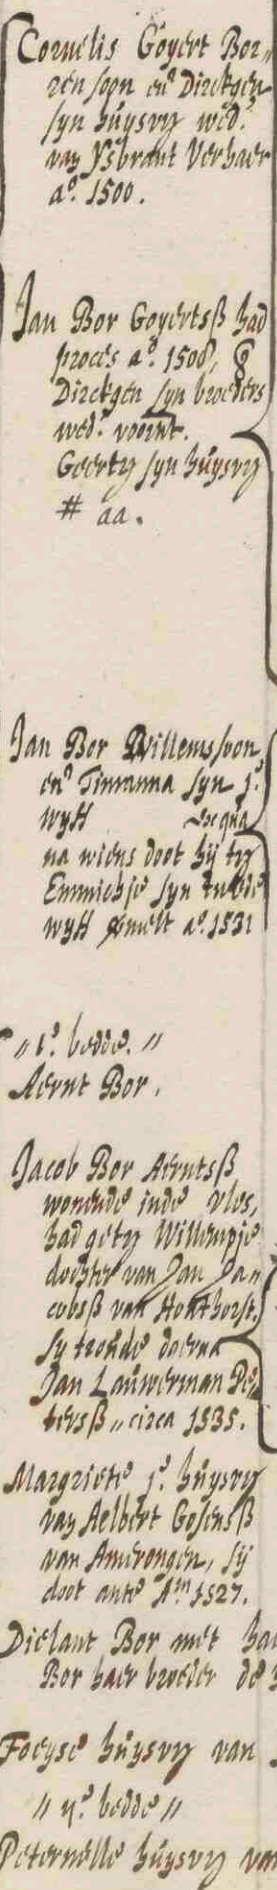 Cornelis Goyert Bor-
ren soon en Dirckgen
syn huysvr wed.
van Ysbrant Verhaer
aº. 1500.
Jan Bor Goyertsß had
proces aº. 1508,
Dirckgen syn broeders
wed. voornt.
Geertz syn huysvr
# aa.
Jan Bor Willemssoon,
en Timanna syn jº.
wyff ex qua
na wiens doot hij
Emmichje syn twede
wyff aº. 1531
,, 1º. bedde. ,,
Aernt Bor.
Jacob Bor Aerntsß
wonende inde
had Willempje
dochter van Jan Ja-
cobsß van Honthorst,
sy troude daerna
Jan Lauwerman Pe-
tersß ,, circa 1535.
Margriete jº. huysvr
van Aelbert Gosensß
van Amerongen, sy
doot ante 1527.
Dielant Bor met
Bor haer broeder de
Foeyse huysvr van
,, bedde ,,
Peternelle huysvr van